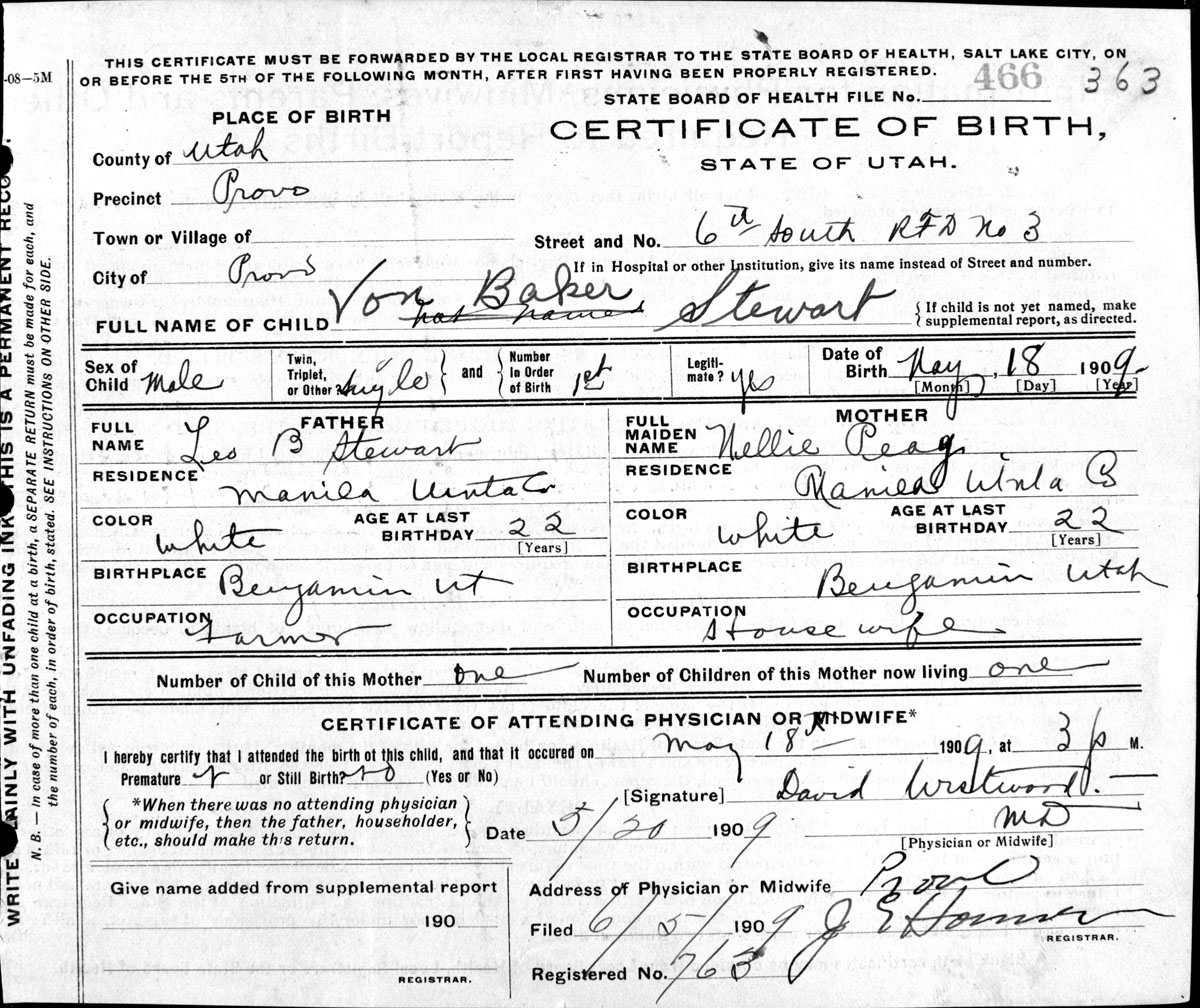 THIS CERTIFICATE MUST BE FORWARDED BY THE LOCAL REGISTRAR TO THE STATE BOARD OF HEALTH, SALT LAKE CITY, ON
-08—5M
OR BEFORE THE 5TH OF THE FOLLOWING MONTH, AFTER FIRST HAVING BEEN PROPERLY REGISTERED.
466 363
STATE BOARD OF HEALTH FILE No.
PLACE OF BIRTH
CERTIFICATE OF BIRTH,
STATE OF UTAH.
County of Utah
Precinct Provo
Town or Village of
Street and No. 6th South RFD No 3
City of Provo
If in Hospital or other Institution, give its name instead of Street and number.
Von Baker Stewart
FULL NAME OF CHILD not named
{If child is not yet named, make
supplemental report, as directed.
Sex of Child Male
Twin, Triplet, or Other? single } and { Number In Order of Birth 1st
Legiti-mate? yes
Date of Birth May 18 1909
[Month] [Day] [Year]
FATHER
FULL NAME Leo B Stewart
RESIDENCE Manila Uinta Co
COLOR White
AGE AT LAST BIRTHDAY 22
[Years]
BIRTHPLACE Benjamin Ut
OCCUPATION Farmer
MOTHER
FULL MAIDEN NAME Nellie
RESIDENCE Manila
COLOR White
AGE AT LAST BIRTHDAY 22
[Years]
BIRTHPLACE Benjamin Utah
OCCUPATION House wife
Number of Child of this Mother one Number of Children of this Mother now living one
CERTIFICATE OF ATTENDING PHYSICIAN OR MIDWIFE*
I hereby certify that I attended the birth of this child, and that it occured on May 18th 1909, at 3 p M.
Premature or Still Birth? no (Yes or No)
[Signature] David Westwood.
*When there was no attending physician
or midwife, then the father, householder,
etc., should make this return.
Date 5/20 1909 MD
[Physician or Midwife]
Give name added from supplemental report
190
REGISTRAR.
Address of Physician or Midwife Provo
Filed 6/5/ 1909 J E
REGISTRAR.
Registered No. 763
WRITE PLAINLY WITH UNFADING INK—THIS IS A PERMANENT RECORD.
N. B.—In case of more than one child at a birth, a SEPARATE RETURN must be made for each, and
the number of each, in order of birth, stated. SEE INSTRUCTIONS ON OTHER SIDE.